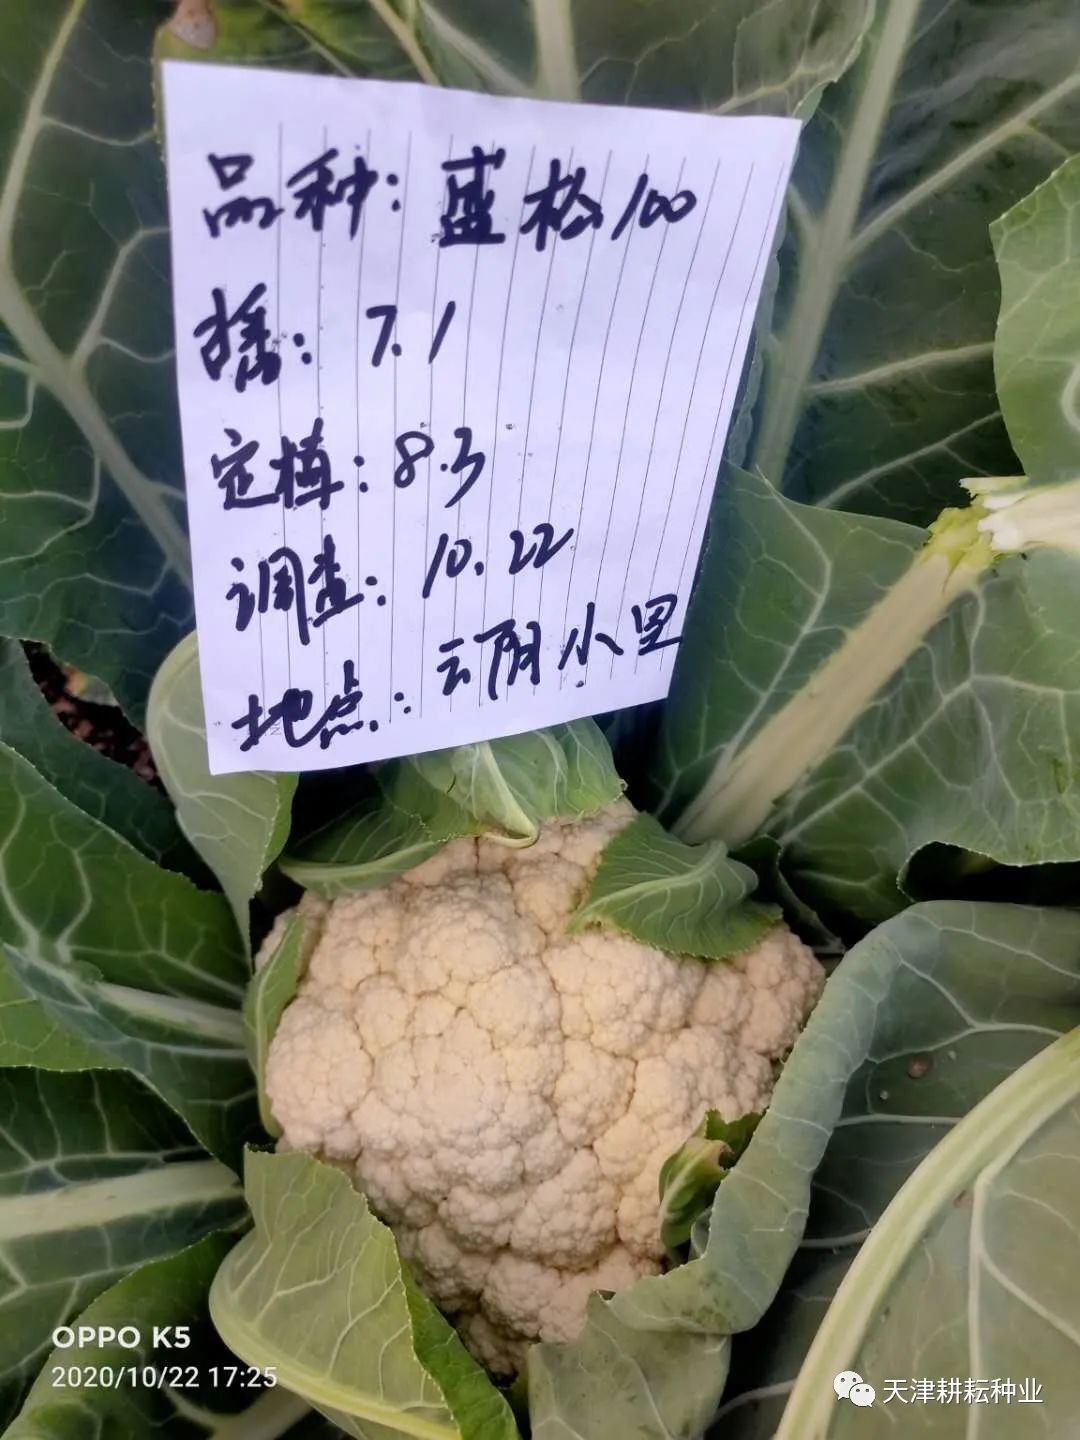 品种: 盛松100
播: 7.1
定植: 8.3
调查: 10.22
地点: 云阴小里
OPPO K5
2020/10/22 17:25
天津耕耘种业